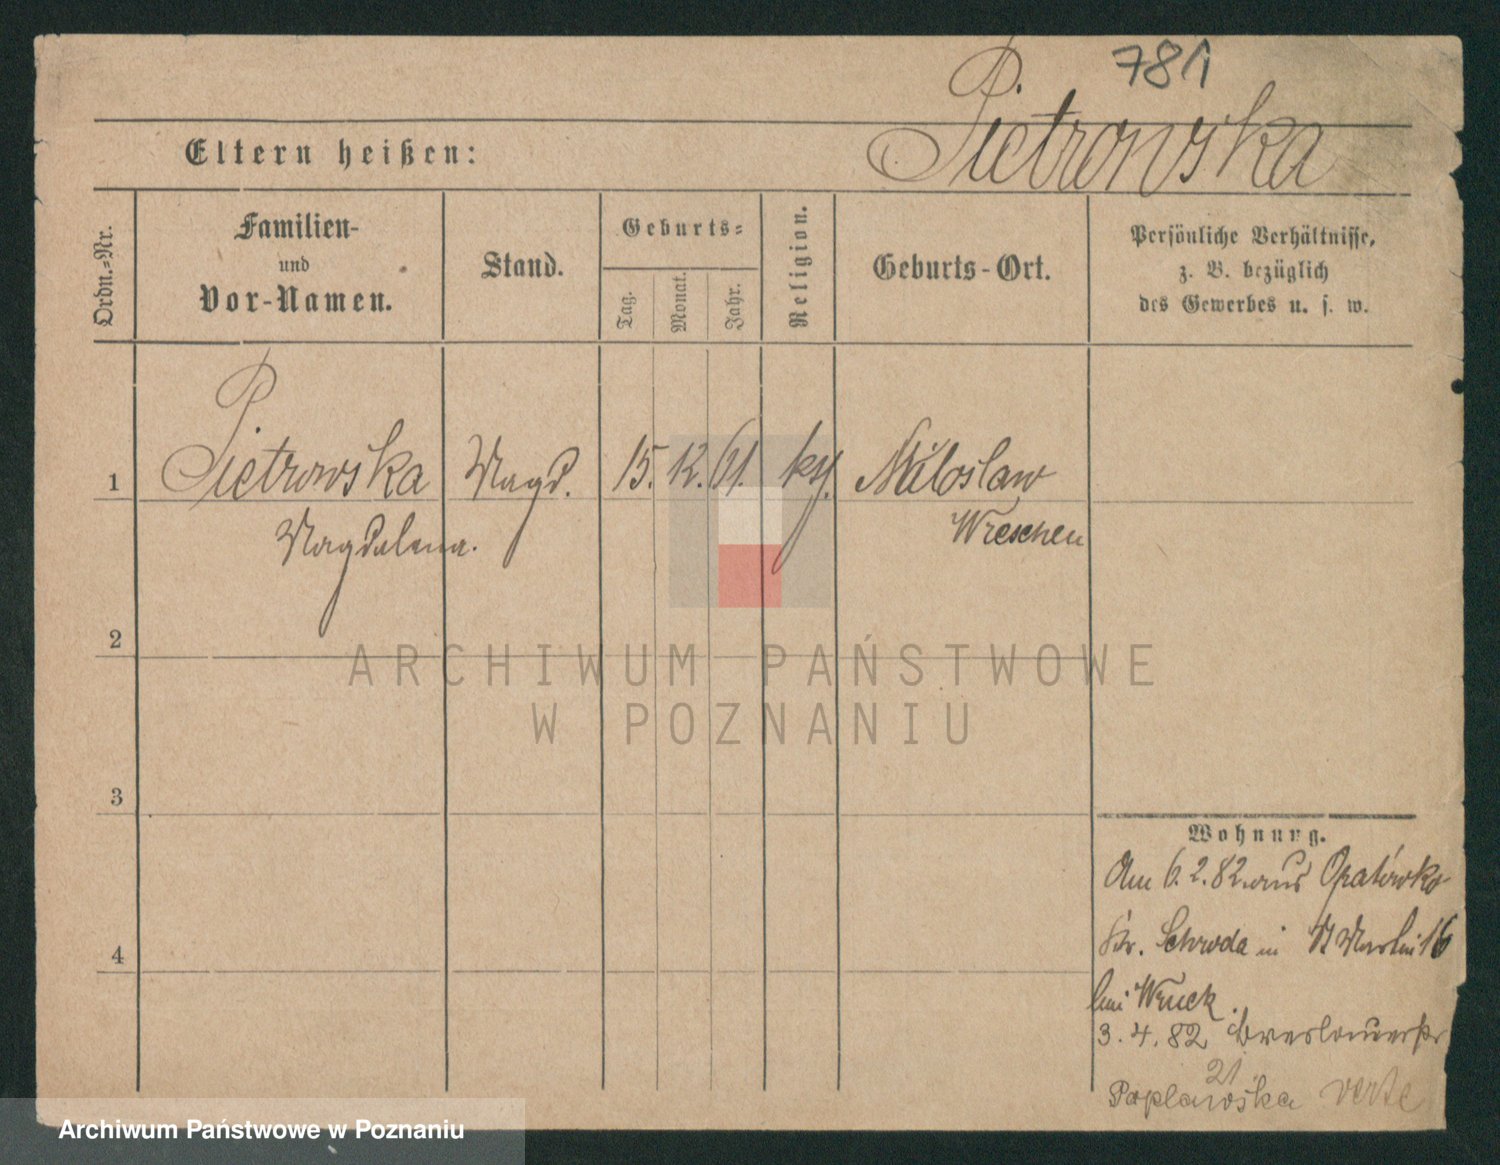 781
Pietrowska
Eltern heißen:
Ordn.-Nr.
Familien-
und
Vor-Namen.
Stand.
Geburts-
Tag.
Monat.
Jahr.
Religion.
Geburts-Ort.
Persönliche Verhältnisse,
z. B. bezüglich
des Gewerbes u. s. w.
1
Pietrowska Magd. 15. 12. 61. kth. Miloslaw
Magdalena. Wreschen
2
3
4
Wohnung.
Am 6.2.82. aus Opatówko
Kr. Schroda in St Martin 16
bei Wruck.
3.4.82 Breslauerstr
21.
Poplawska verte
ARCHIWUM PAŃSTWOWE
W POZNANIU
Archiwum Państwowe w Poznaniu